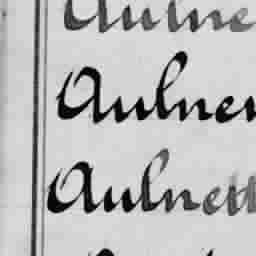 Aulne
Aulner
Aulnett